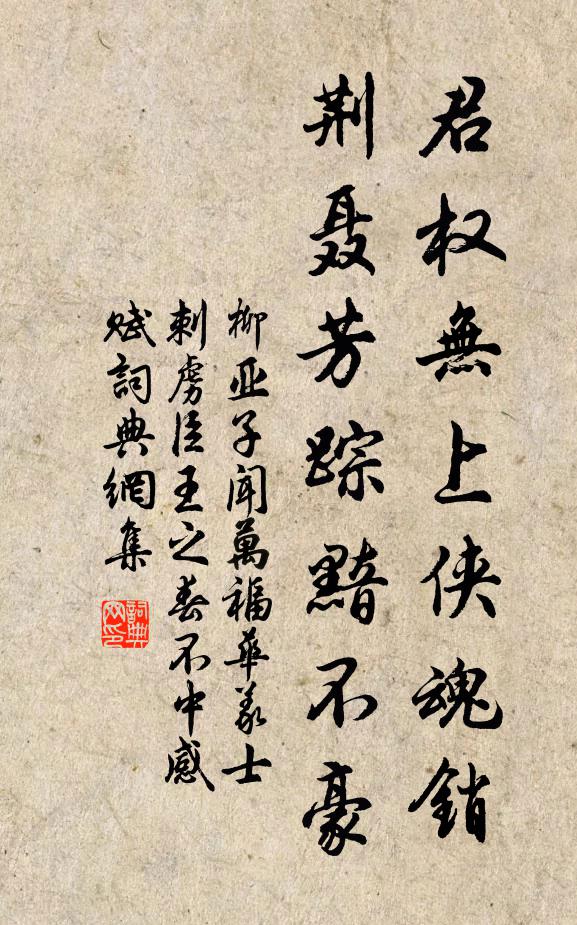 君权無上侠魂銷
荆聂芳踪黯不豪
柳亚子闻萬福華義士
刺虏臣王之春不中感
赋詞典網集
詞典网印